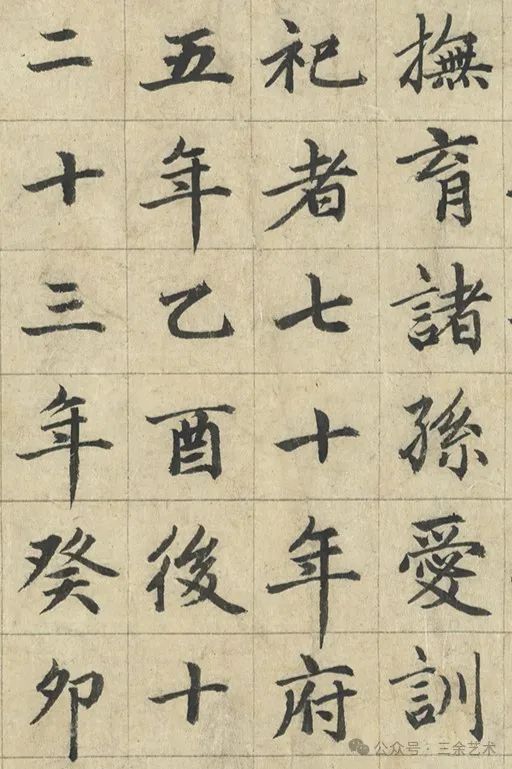 撫育諸孫愛訓
祀者七十年府
五年乙酉後十
二十三年癸卯
公众号·三余艺术